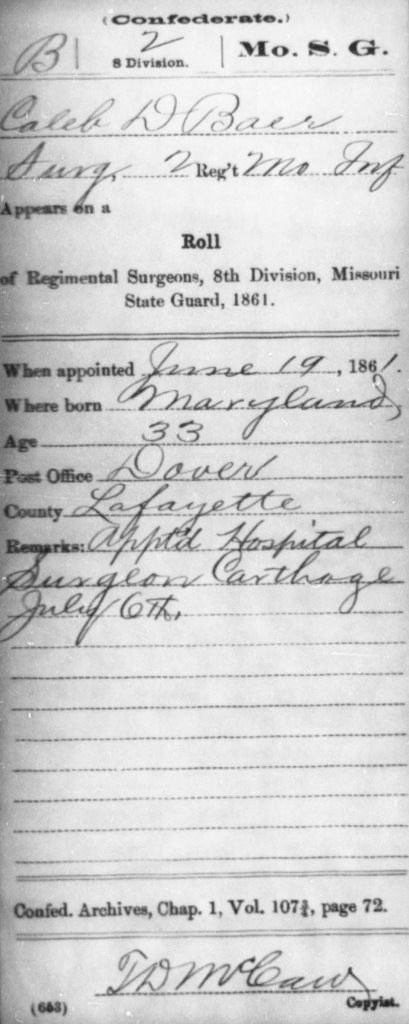 (Confederate.)
B | 2 | Mo. S. G.
8 Division.
Caleb D Baer
Surg, 2 Reg't Mo Inf
Appears on a
Roll
of Regimental Surgeons, 8th Division, Missouri
State Guard, 1861.
When appointed June 19, 1861.
Where born Maryland,
Age 33
Post Office Dover
County Lafayette
Remarks: Apptd Hospital
Surgeon Carthage
July 6th.
Confed. Archives, Chap. 1, Vol. 107¾, page 72.
T D McCaw
(653) Copyist.